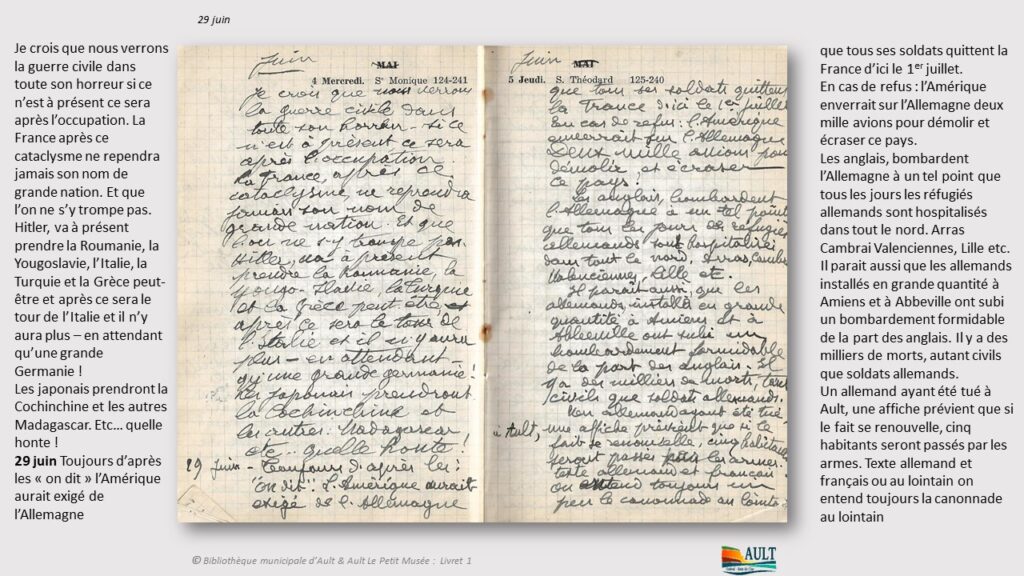 29 juin
Je crois que nous verrons
la guerre civile dans
toute son horreur si ce
n’est à présent ce sera
après l’occupation. La
France après ce
cataclysme ne rependra
jamais son nom de
grande nation. Et que
l’on ne s’y trompe pas.
Hitler, va à présent
prendre la Roumanie, la
Yougoslavie, l’Italie, la
Turquie et la Grèce peut-
être et après ce sera le
tour de l’Italie et il n’y
aura plus – en attendant
qu’une grande
Germanie !
Les japonais prendront la
Cochinchine et les autres
Madagascar. Etc… quelle
honte !
29 juin Toujours d’après
les « on dit » l’Amérique
aurait exigé de
l’Allemagne
Juin
MAI
4 Mercredi. Sᵉ Monique 124-241
Je crois que nous verrons
la guerre civile dans
toute son horreur - si ce
n'est à présent ce sera
après l'occupation.
La France, après ce
cataclysme, ne reprendra
jamais son nom de
grande nation. Et que
l'on ne s'y trompe pas.
Hitler, va à présent
prendre la Roumanie, la
Yougo-slavie, la turquie
et la Grèce peut être et
après ce sera le tour de
l'Italie et il n'y aura
plus - en attendant -
qu'une grande germanie!
Les japonais prendront
la Cochinchine et
les autres Madagascar
etc.. quelle honte!
29 juin - Toujours d'après les:
"on dit". L'Amérique aurait
exigé de l'Allemagne
Juin
MAI
5 Jeudi. S. Théodard 125-240
que tous ses soldats quittent
la France d'ici le 1er juillet
En cas de refus: l'Amérique
enverrait sur l'Allemagne
deux mille avions pour
démolir, et écraser
ce pays.
Les anglais, bombardent
l'Allemagne à un tel point
que tous les jours les réfugiés
allemands sont hospitalisés
dans tout le nord. Arras, Cambrai
Valenciennes, Lille etc.
Il parait aussi que les
allemands installés en grande
quantité à Amiens et à
Abbeville ont subi un
bombardement formidable
de la part des anglais. Il
y a des milliers de morts, tant
civils que soldats allemands.
Un allemand ayant été tué
à Ault, une affiche prévient que si le
fait se renouvelle, cinq habitants
seront passés par les armes.
texte allemand et français
on entend toujours un
peu la canonnade au lointain
que tous ses soldats quittent la
France d’ici le 1er juillet.
En cas de refus : l’Amérique
enverrait sur l’Allemagne deux
mille avions pour démolir et
écraser ce pays.
Les anglais, bombardent
l’Allemagne à un tel point que
tous les jours les réfugiés
allemands sont hospitalisés
dans tout le nord. Arras
Cambrai Valenciennes, Lille etc.
Il parait aussi que les allemands
installés en grande quantité à
Amiens et à Abbeville ont subi
un bombardement formidable
de la part des anglais. Il y a des
milliers de morts, autant civils
que soldats allemands.
Un allemand ayant été tué à
Ault, une affiche prévient que si
le fait se renouvelle, cinq
habitants seront passés par les
armes. Texte allemand et
français ou au lointain on
entend toujours la canonnade
au lointain
© Bibliothèque municipale d’Ault & Ault Le Petit Musée : Livret 1
AULT